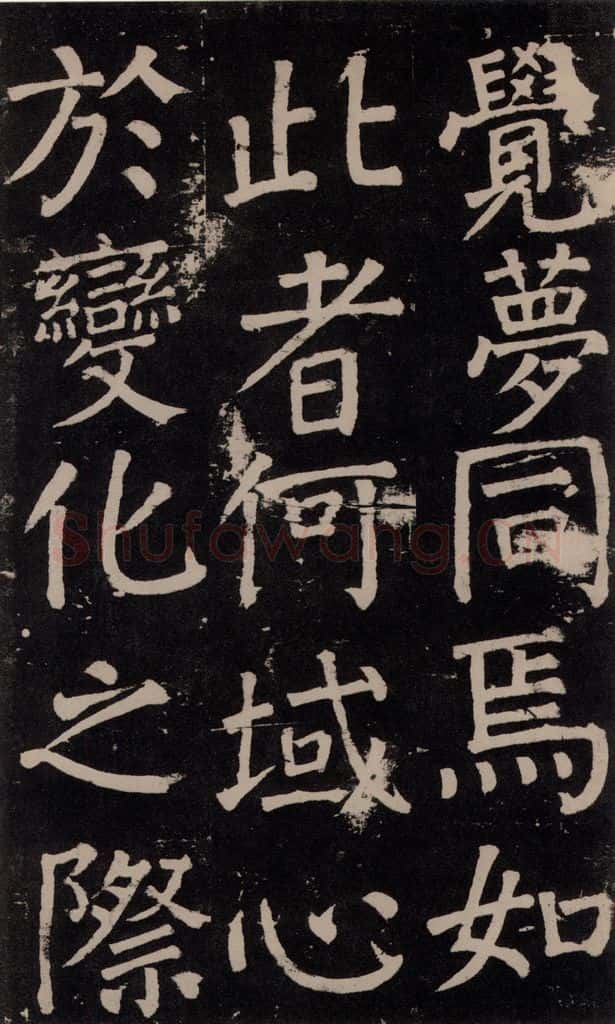 覺夢同焉如
此者何域心
於變化之際
Shufawang.CN